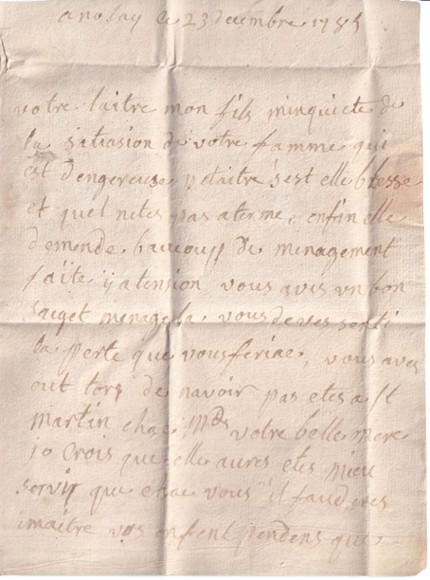 anosay ce 23 decembre 1785
votre laitre mon fils minquiete de
la sitiasion de votre famme qui
est dengereuse petaitre sest elle blesse
et quel netes pas a terme, enfin elle
demende baucoup de menagement
faite ÿ atension vous aves un bon
suiget menagela vous deves senti
la perte que vous feriae, vous aves
out tors de navoir pas etes a st
martin chae Md votre belle mere
jo crois que elle aures etes mieu
servir que chae vous il fauderes
imaitre vos enfent pendens que